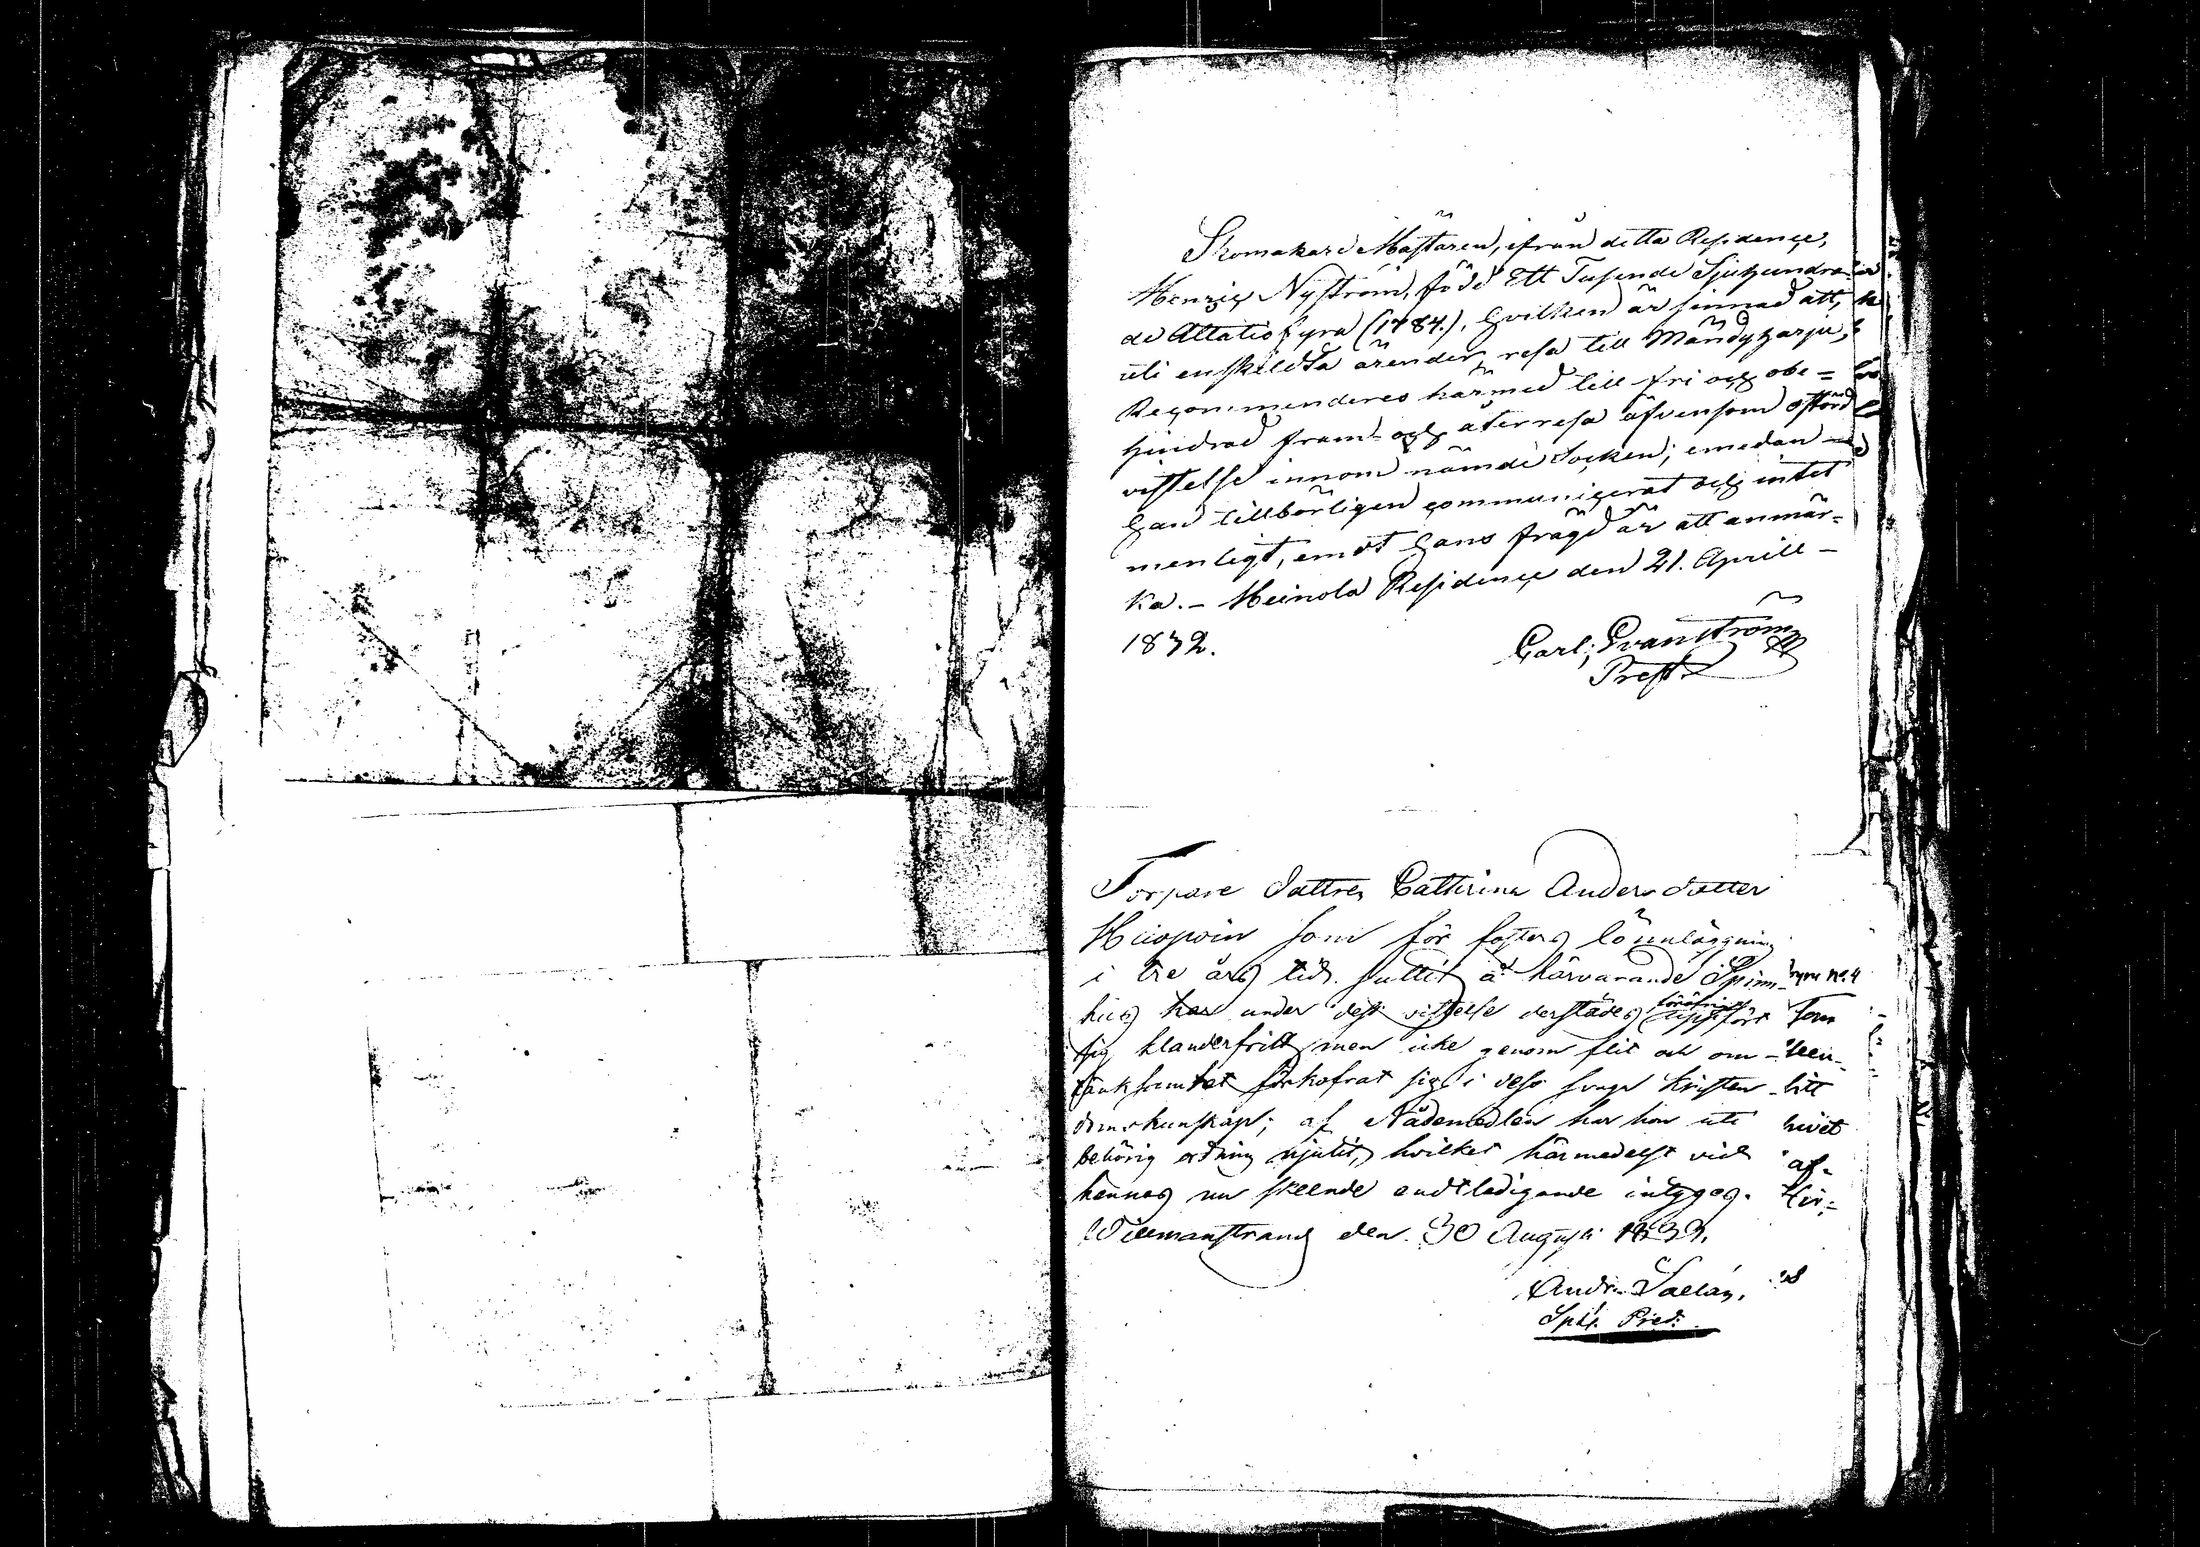 Skomakare Mästaren, ifrån detta Residence,
Henric Nyström, född Ett Tusende Sjuhundra-
de Åttatio fyra (1784.), hvilken är sinnad att,
uti enskildta ärender, resa till Mändyharju,
Recommenderes härmed till fri och obe=
hindrad fram- och återresa äfvensom ostörd
vistelse innom nämde Socken; emedan
han tillbörligen communicerat och intet
menligt, emot hans frägd är att anmär-
ka. - Heinola Residence den 21. Aprill -
1832.
Carl, Qvanström
Præst.
Torpare Dottren Catharina Anders dotter
som för fosters lönnläggning
i tre års tid suttit å härvarande Spinn-
hus har under dess vistelse derstädes uppfört
sig klanderfritt men icke genom flit och om-
tänksamhet förkofrat sig i dess svaga kristen-
domskunskap; af Nådemedlen har hon uti
behörig ordning njutit, hvilket härmedelst vid
hennes nu skeende endtledigande intygas.
Willmanstrand den 30 Augusti 1833.
Andr. Saelan,
Sphs. Pred:
N:o 4
Som
litt
af-